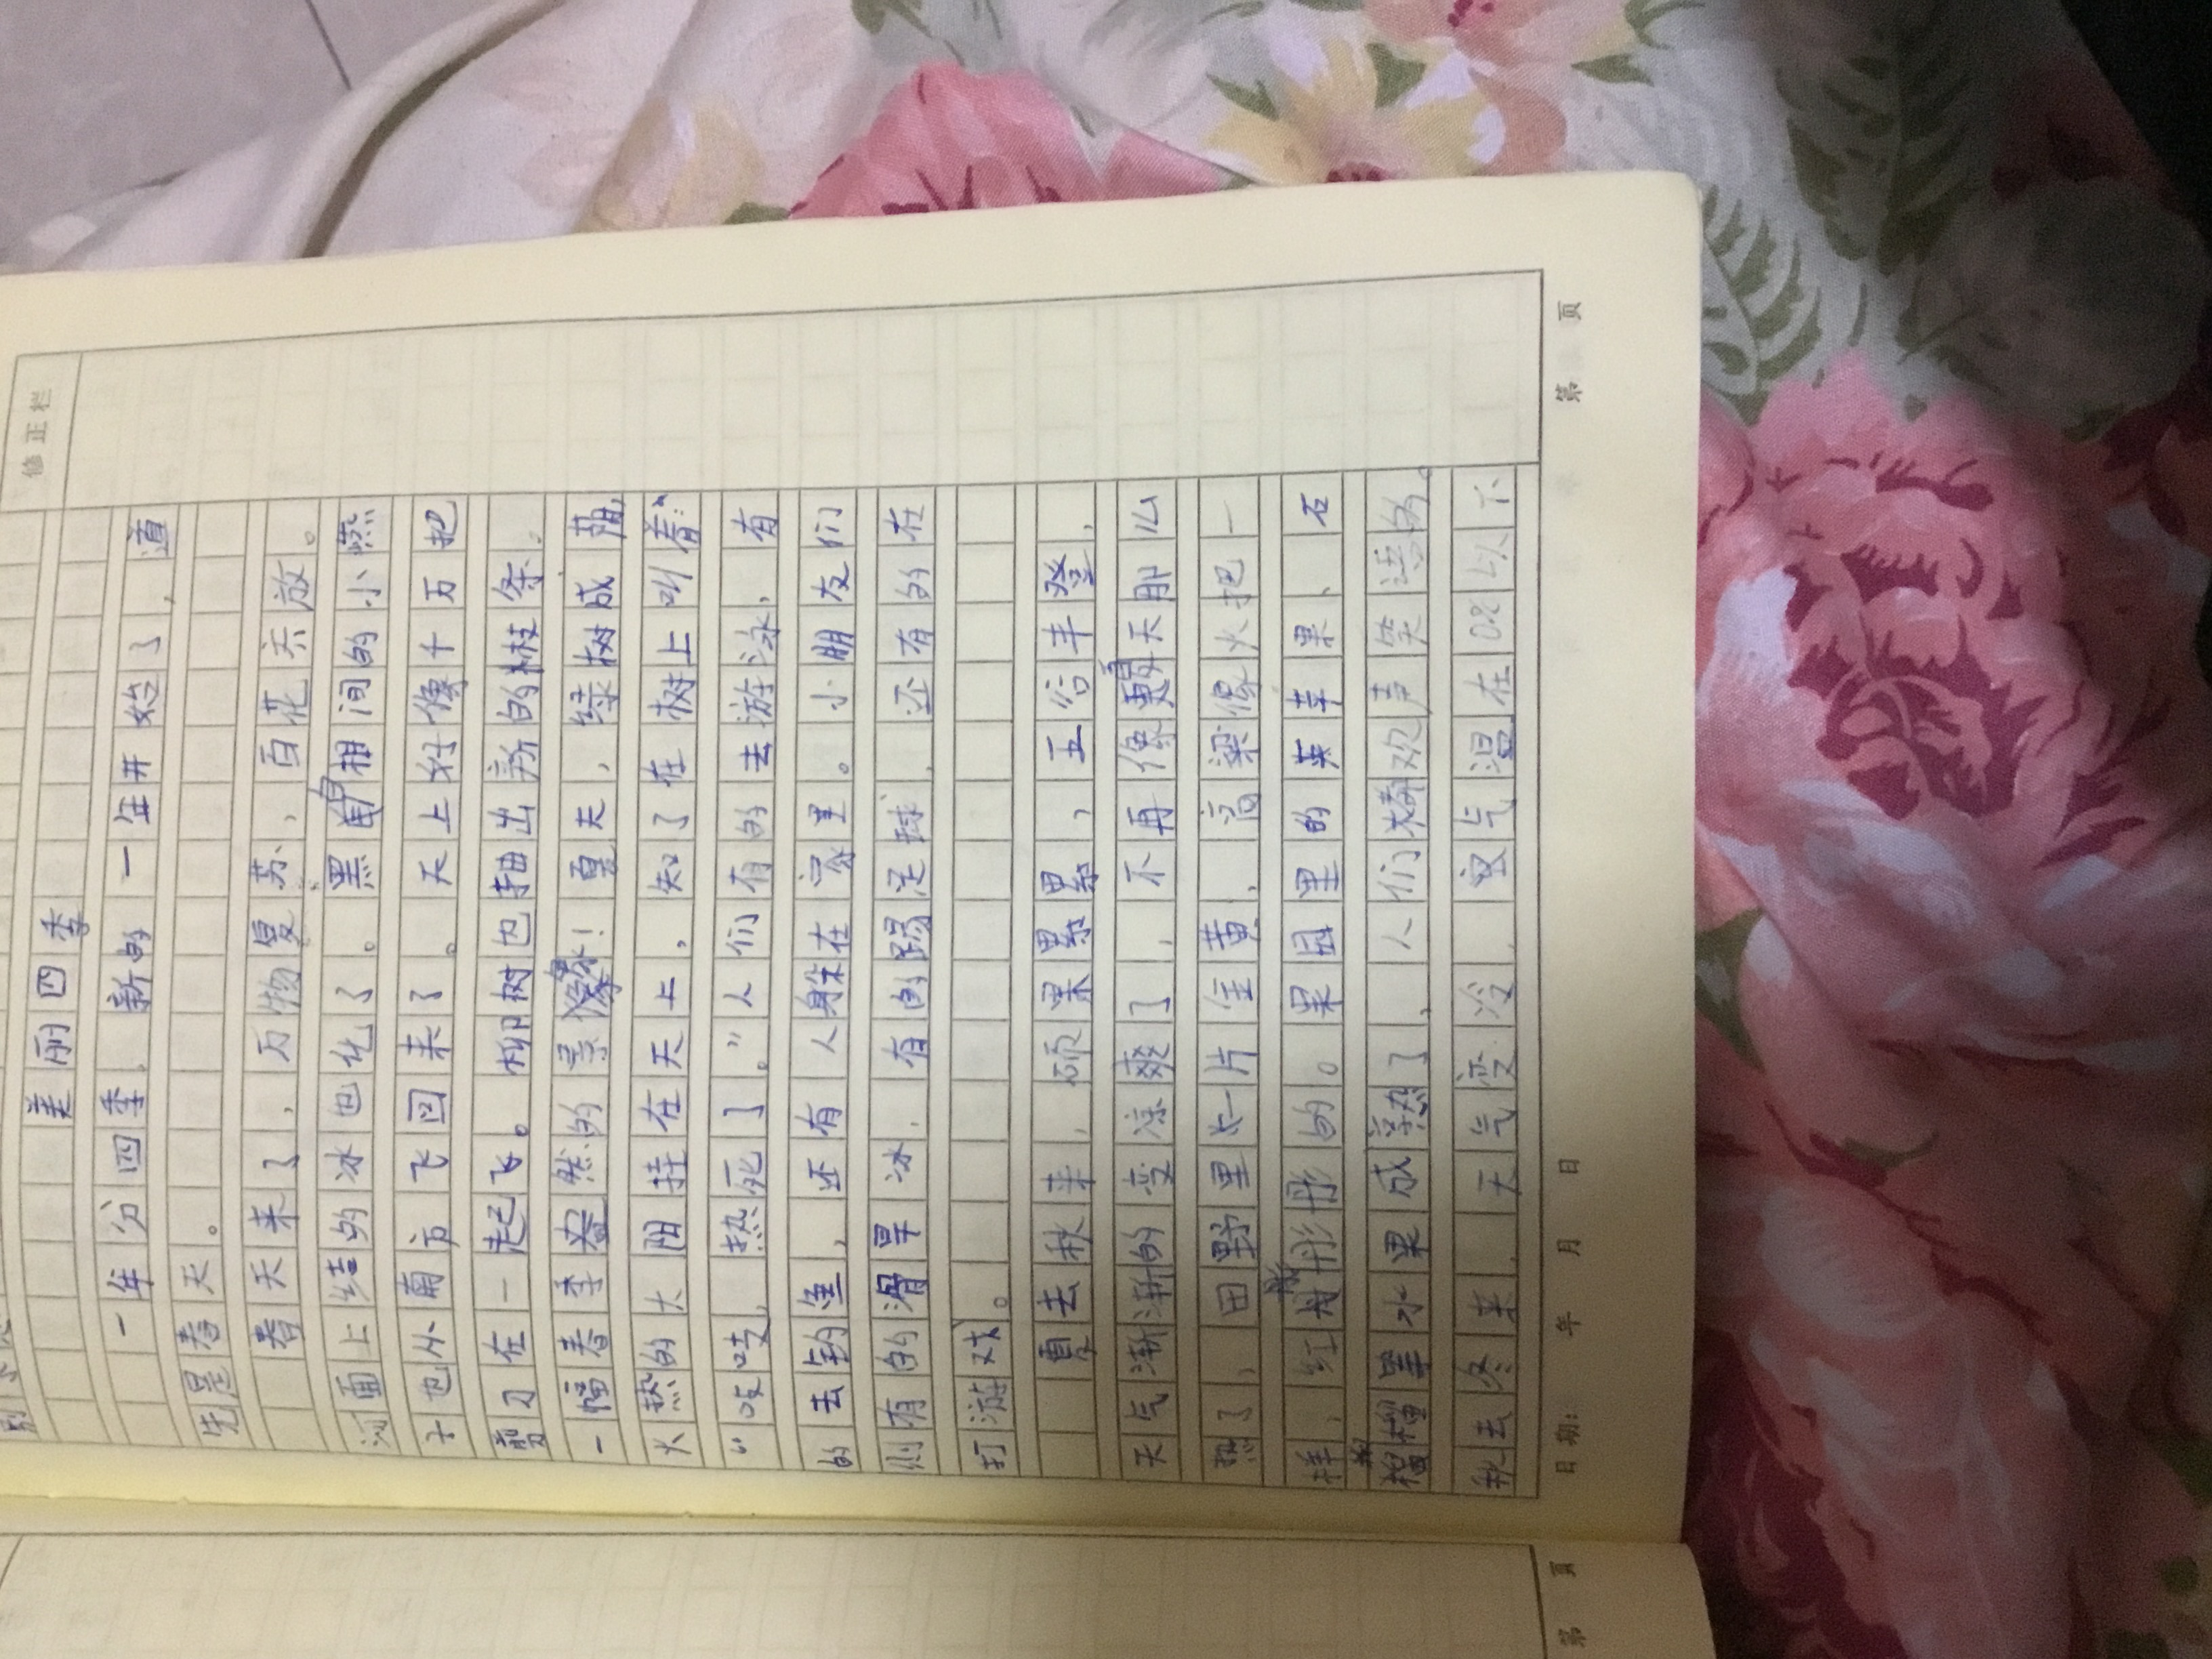 修正栏
美丽四季
一年分四季，新的一年开始了，道
先是春天。
春天来了，万物复苏、百花齐放。
河面上结的冰也化了。黑白相间的小燕
子也从南方飞回来了。天上好像千万把
剪刀在一起飞。柳树也抽出新的枝条。
一幅春季盎然的景象！夏天，绿树成荫，
火热的太阳挂在天上，知了在树上叫着：“
“吱吱，热死了。”人们有的去游泳，有
的去钓鱼，还有人躲在家里。小朋友们
们有的滑旱冰，有的踢足球，还有的在
打游戏。
夏去秋来，硕果累累，五谷丰登，
天气渐渐的变凉爽了，不再像夏天那么
热了，田野里一片金黄，高粱像火把一
样，红彤彤的。果园里的苹果、石
榴等水果成熟了，人们欢声笑语的。
秋去冬来，天气变冷，空气温在0℃以下
日期： 年 月 日 第 页
第 页